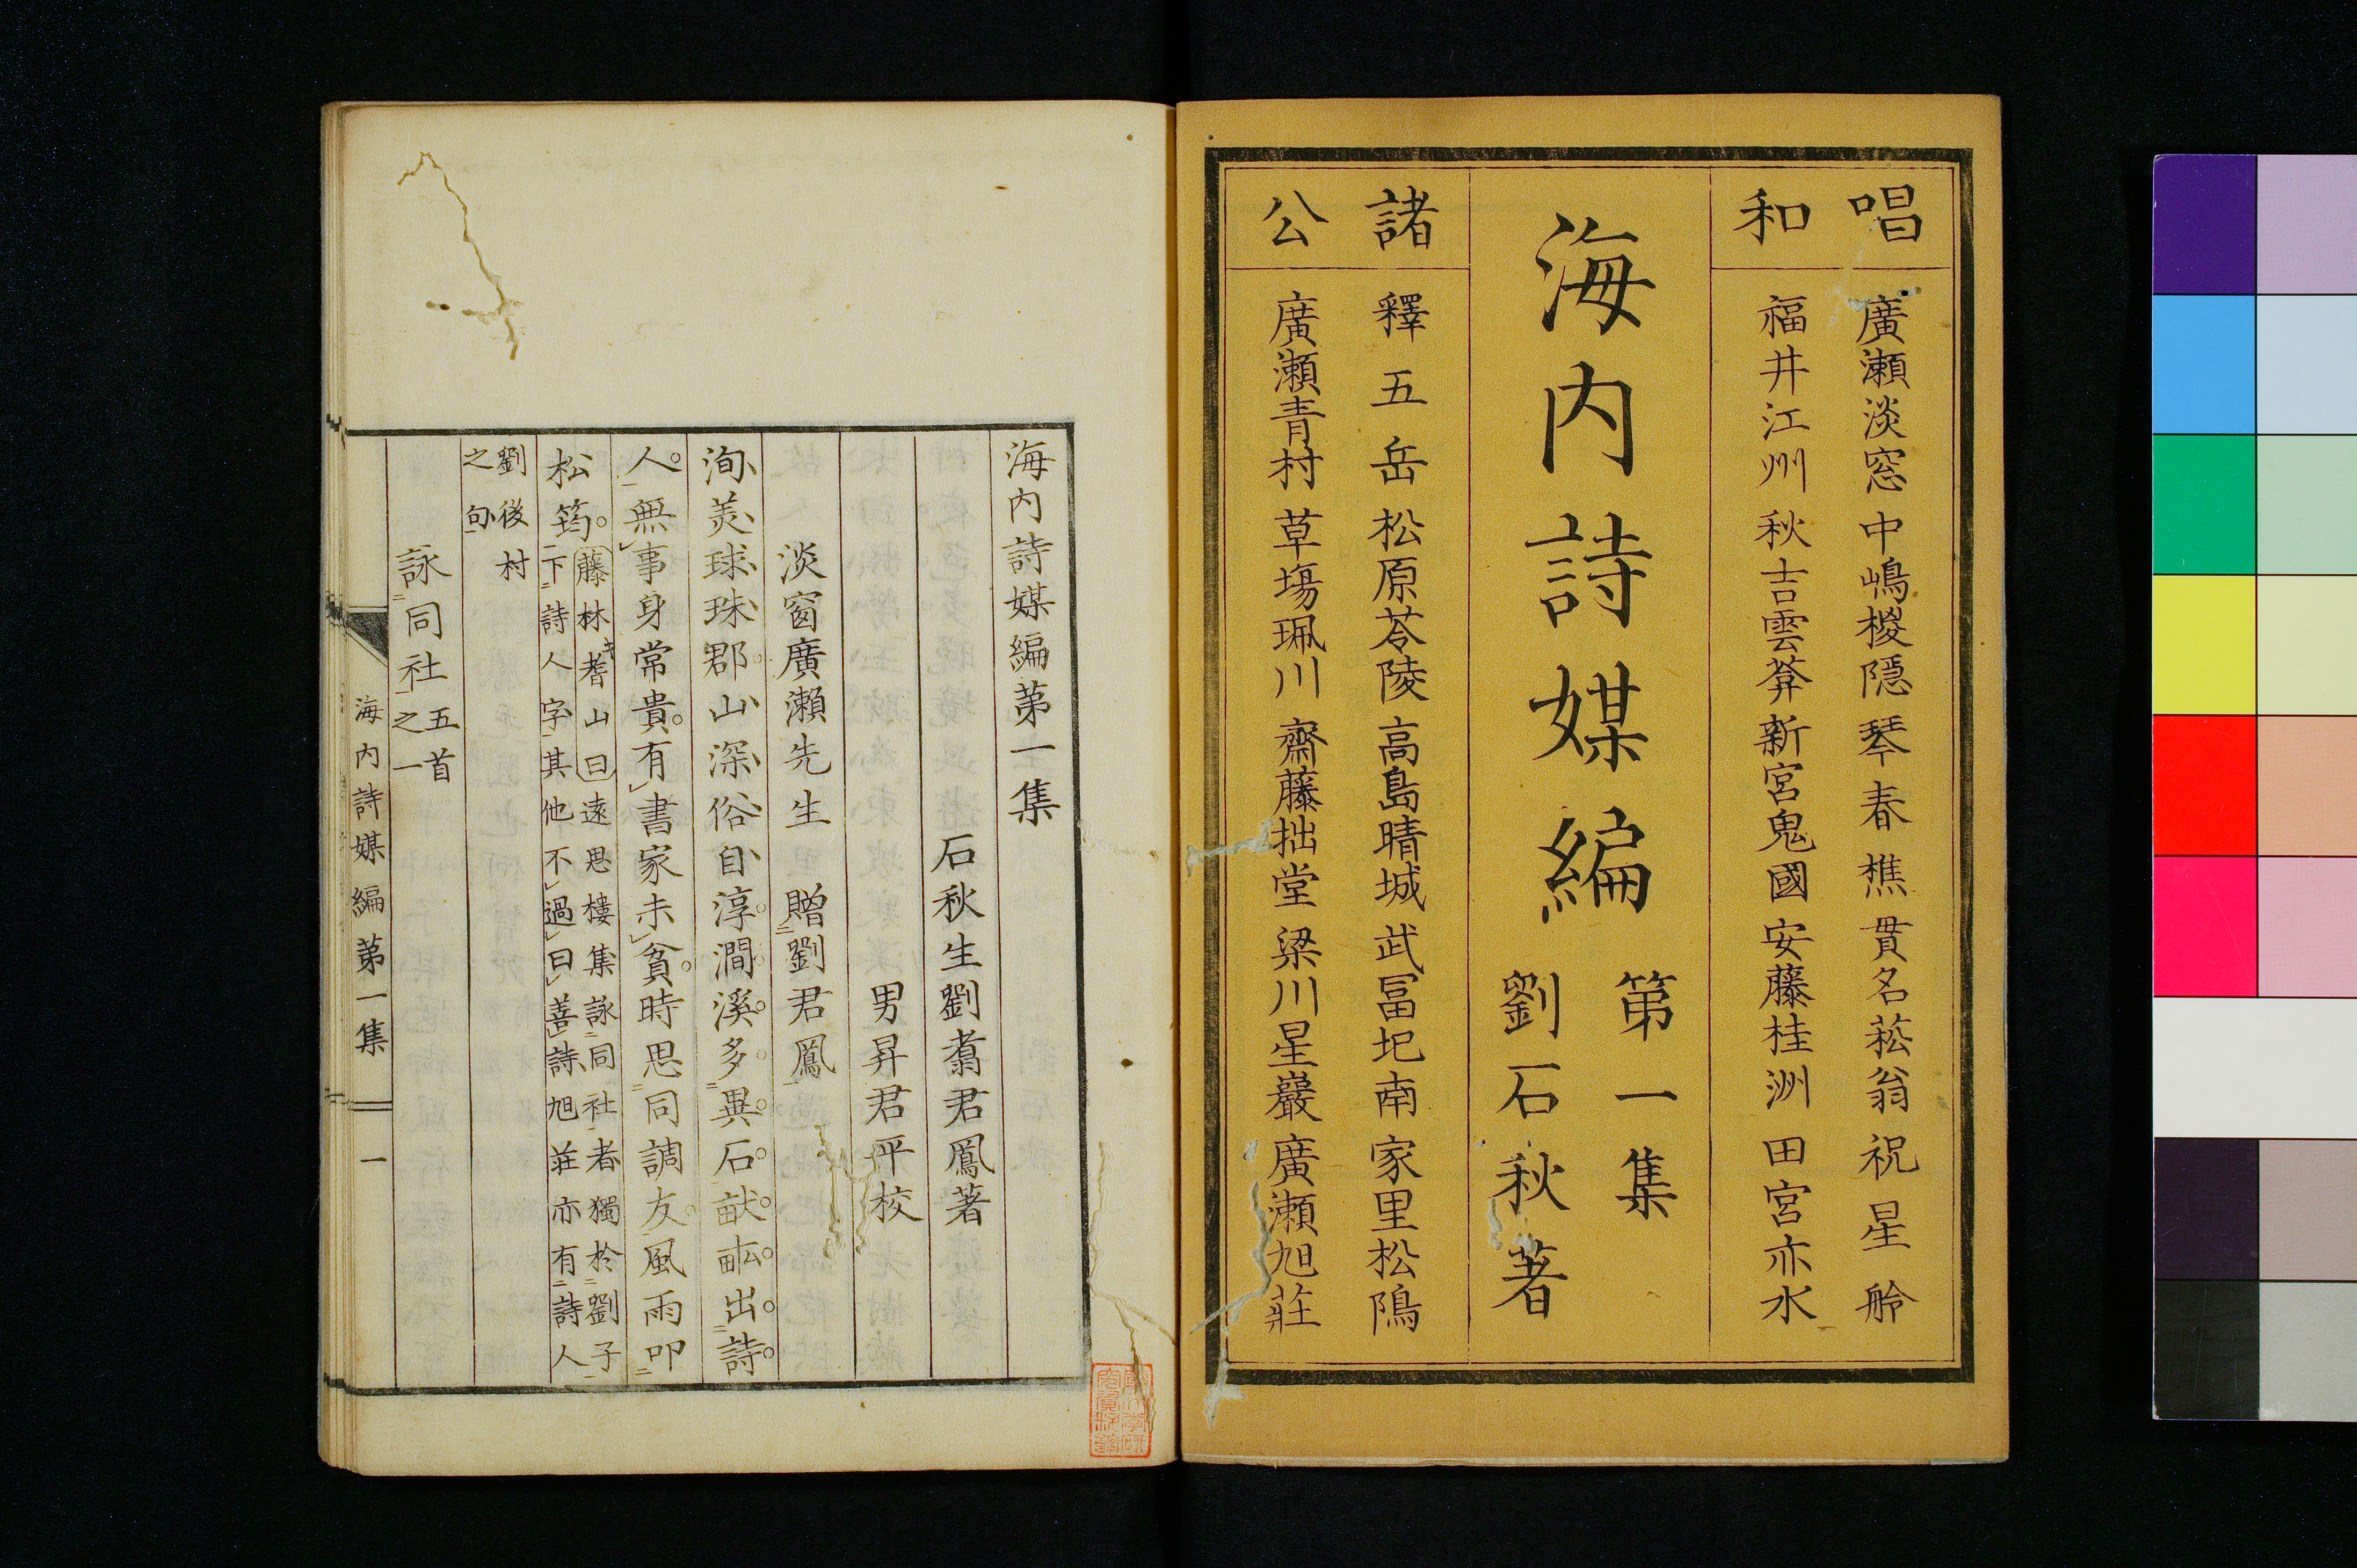 唱和諸公
廣瀨淡窓 中嶋椶隱 琴春樵 貫名菘翁 祝星舲
福井江州 秋吉雲菴 新宮鬼國 安藤桂洲 田宮亦水
海內詩媒編
第一集
劉石秋著
釋五岳 松原苓陵 高島晴城 武冨圯南 家里松隝
廣瀨青村 草場珮川 齋藤拙堂 梁川星巖 廣瀨旭莊
海內詩媒編第一集
石秋生劉翥君鳳著
男昇君平校
淡窗廣瀨先生 贈劉君鳳
洵美球珠郡山深俗自淳澗溪多異石畎畝出詩
人無事身常貴有書家未貧時思同調友風雨叩
松筠
藤林耆山曰遠思樓集詠同社者獨於劉子
下詩人字其他不過曰善詩旭莊亦有詩人
劉後村
之句
詠同社五首之一
海內詩媒編第一集 一